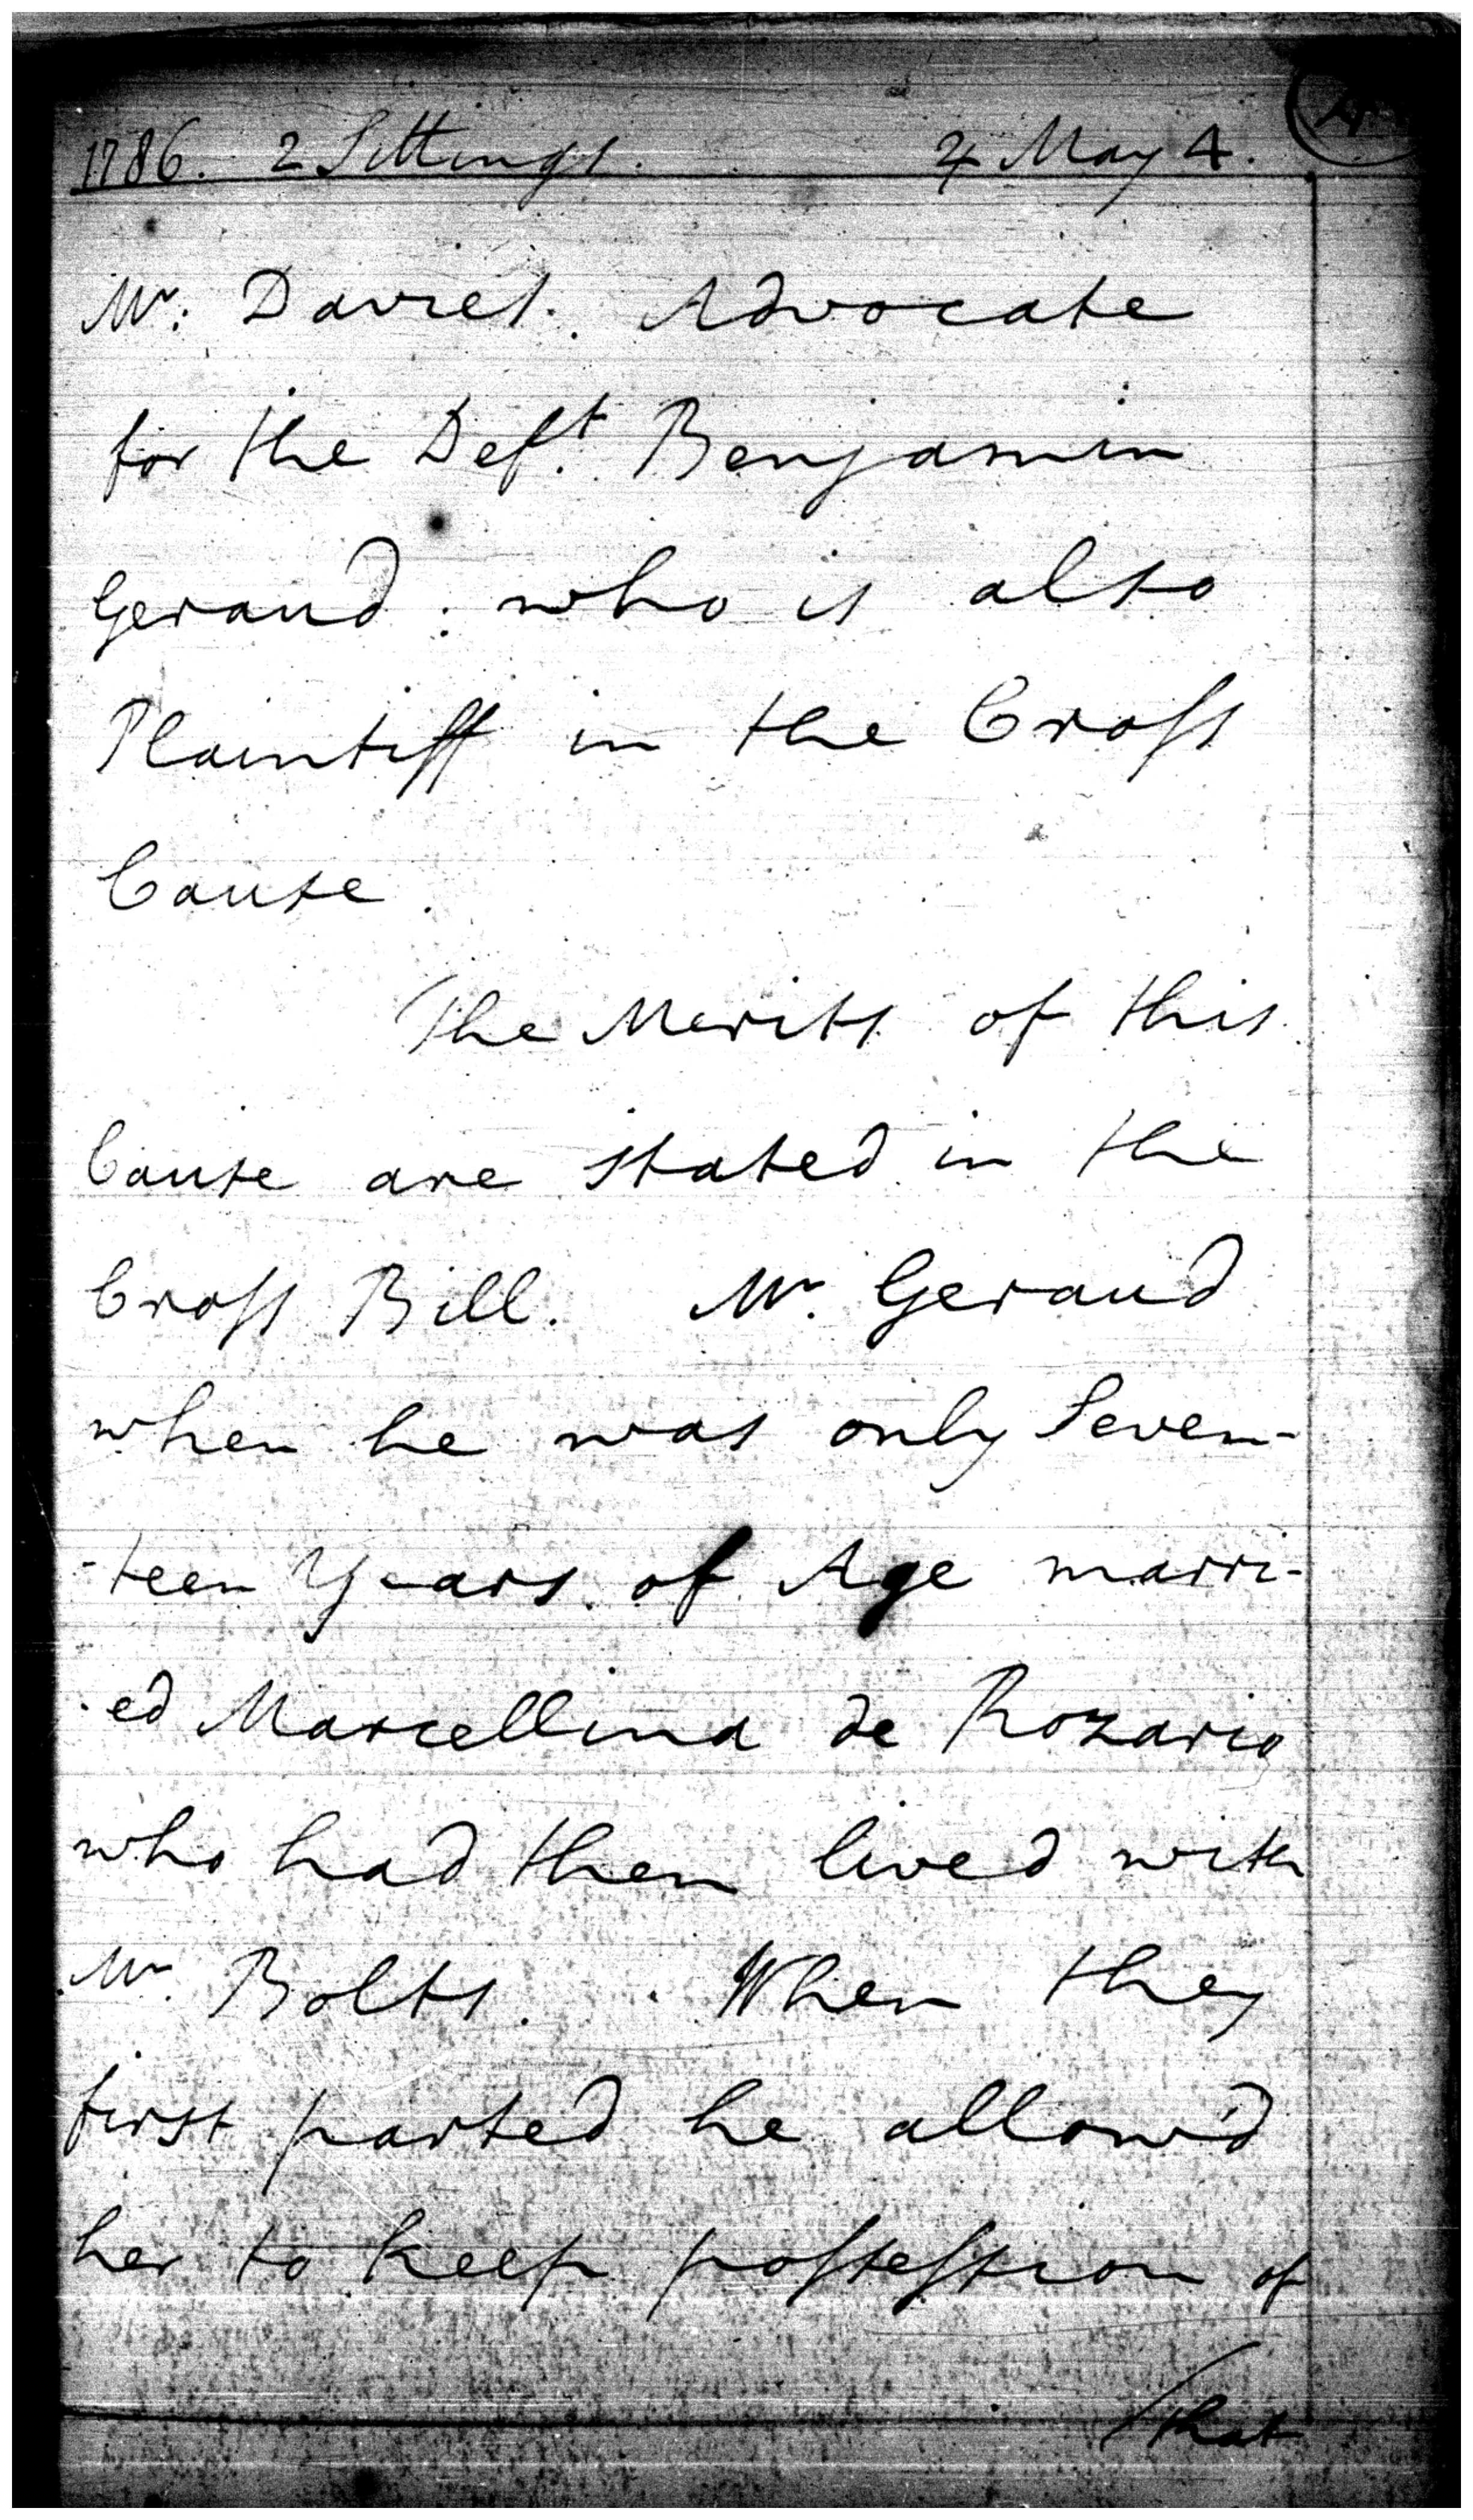 1786. 2 Sittings. 4 May 4.
Mr. Davies. Advocate
for the Deft. Benjamin
Geraud: who is also
Plaintiff in the Croſs
Cause.
The Merits of this
Cause are stated in the
Croſs Bill. Mr. Geraud
when he was only Seven-
-teen Years of Age marri-
-ed Marcellina de Rozario
who had then lived with
Mr. Bolts. When they
first parted he allow'd
her to keep poſseſsion of
that